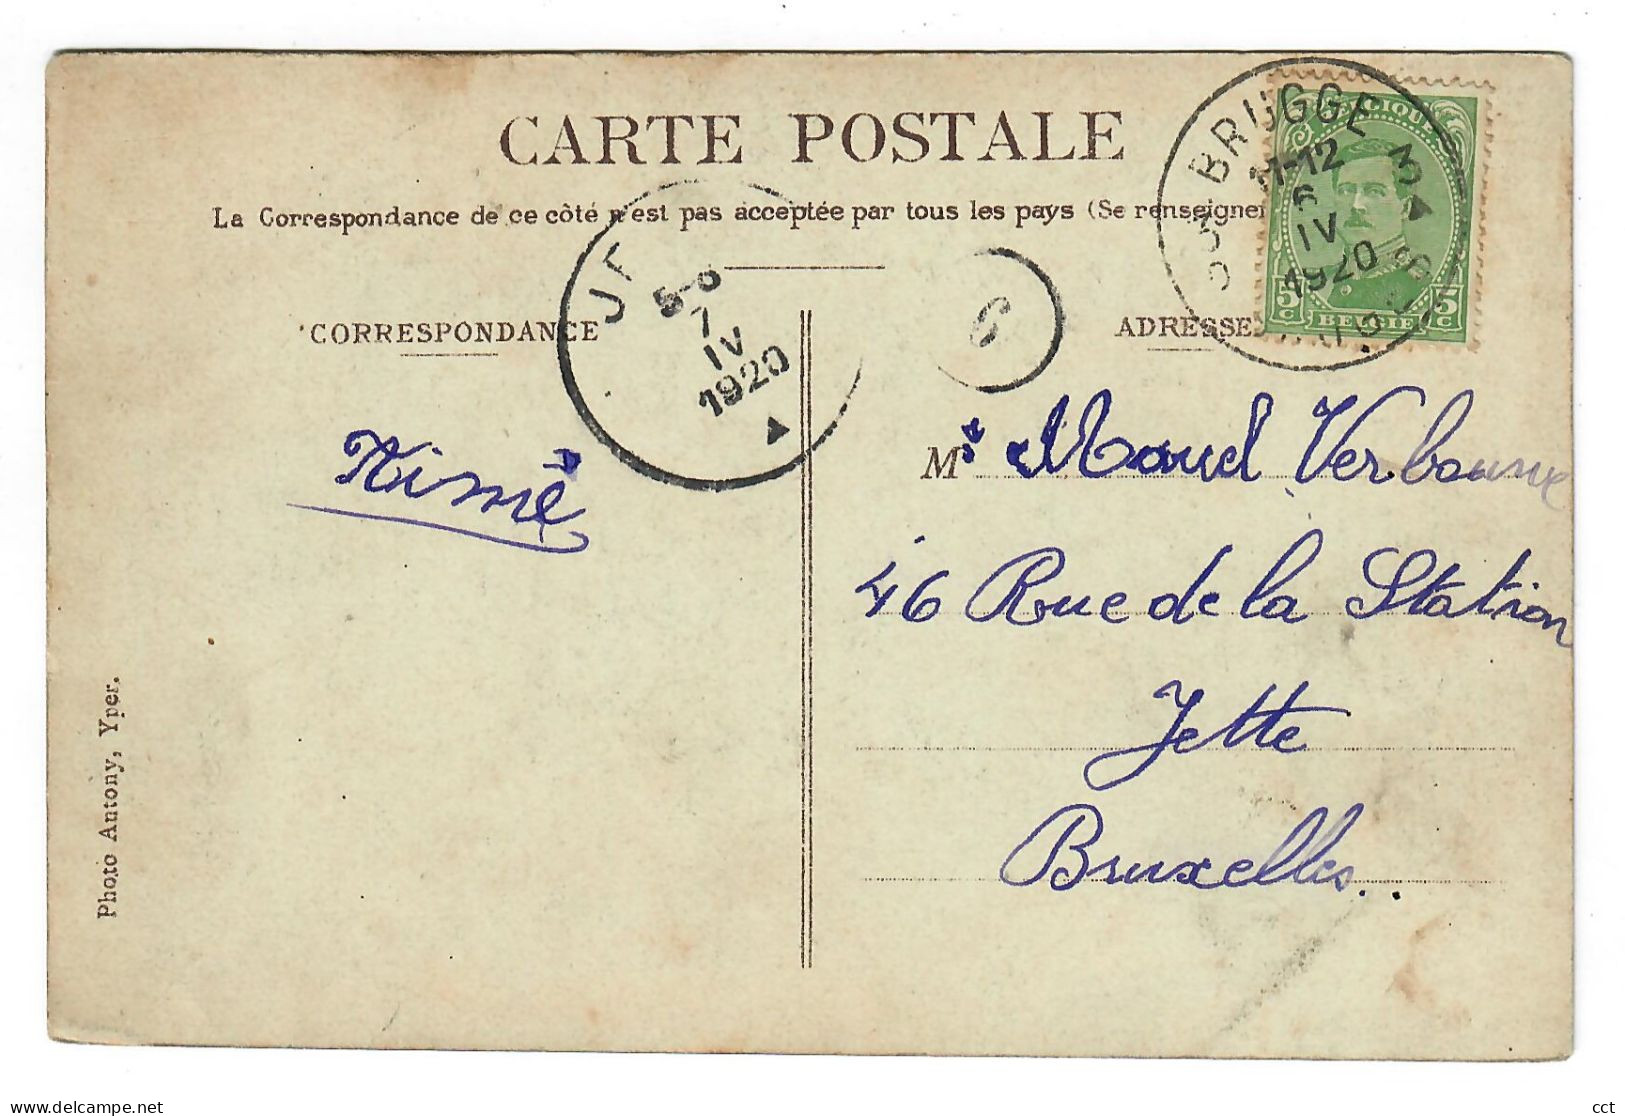 CARTE POSTALE
La Correspondance de ce côté n'est pas acceptée par tous les pays (Se renseigner
CORRESPONDANCE
ADRESSE
BRUGGE 3
11-12
6
IV
1920
BELGIQUE
5 C
BELGIE
5 C
5-6
7
IV
1920
6
Mimie
Maud
46 Rue de la Station
Jette
Bruxelles.
Photo Antony, Yper.
delcampe.net
cct